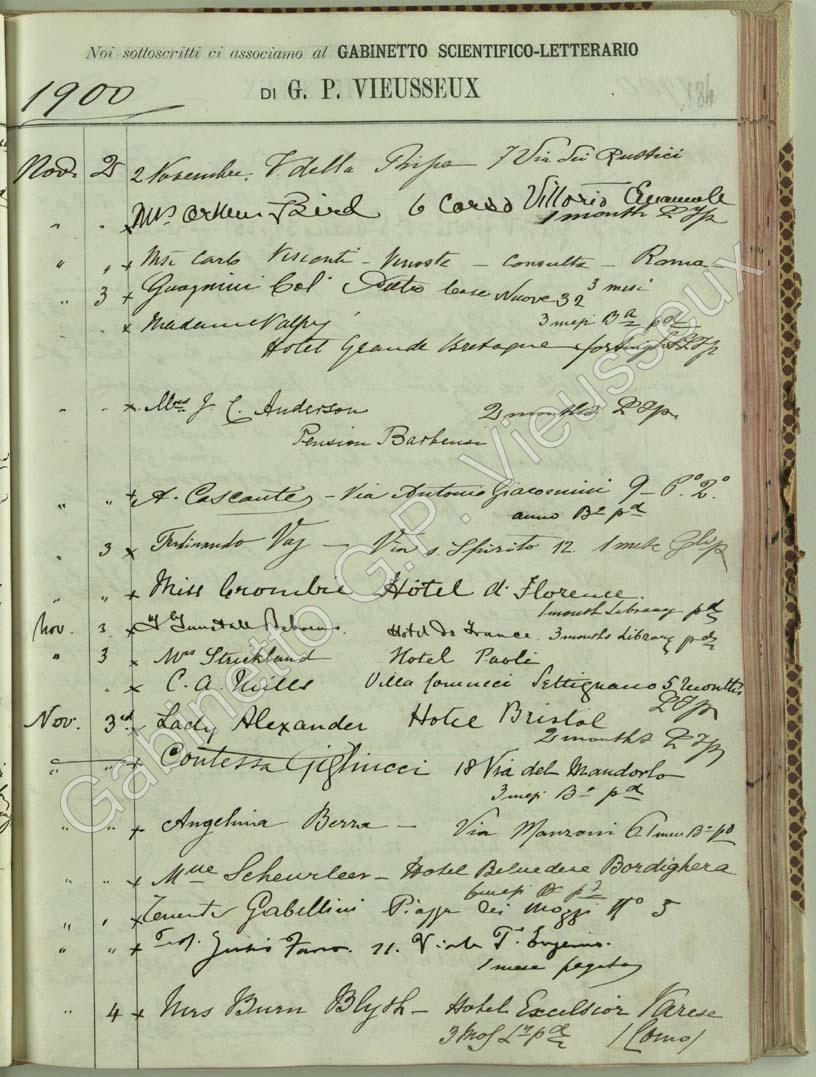 Noi sottoscritti ci associamo al GABINETTO SCIENTIFICO-LETTERARIO
DI G. P. VIEUSSEUX
1900
184
Nov. 2 2 Novembre. V. della Ripa 7 Via dei Rustici
" " x Mrs Arthur Bird 6 Corso Vittorio Emanuele
1 month
" " x Mrs Carlo Visconti - Venosta - Consulta - Roma -
" 3 x Guagnini Col Pietro Case Nuove 32 3 mesi
x Madame Valpy 3 mesi Ba pd
Hotel Grande Bretagne
" " x Mrs J. C. Anderson 2 months
Pension Barbensi
" " x A. Cascante - Via Antonio Giacomini 9 - Po. 2o
anno Ba pd
" 3 x Ferdinando Vaj - Via S. Spirito 12. 1 mese
" " x Miss Crombie Hôtel de Florence.
1 month Library pd
Nov. 3. x Hotel de France. 3 months Library pd
" 3 x Mrs Strickland Hotel Paoli
" x C. A. Mills Villa Settignano 5 months
Nov. 3rd x Lady Alexander Hotel Bristol
2 months
" " x Contessa Gigliucci 18 Via del Mandorlo
3 mesi Ba pd
" " x Angelina Berra - Via Manzoni 1 mese Ba pd
" " x Mme Scheurleer - Hotel Belvedere Bordighera
6 mesi pd
" " x Tenente Gabellini Piazza dei Mozzi No 5
" " x Prof. 11. Viale Pe Eugenio.
1 mese pagato
" 4 x Mrs Burn Blyth - Hotel Excelsior Varese
3 pd (Como)
Gabinetto G.P. Vieusseux